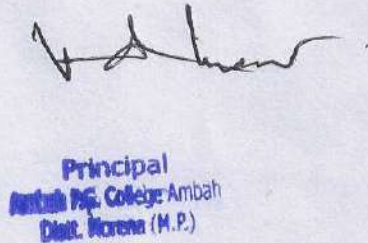 Principal
Ambah P.G. College Ambah
Distt. Morena (M.P.)